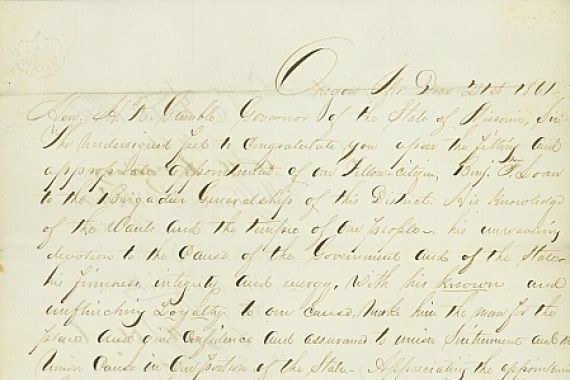 Oregon Mo. Decr 21st 1861
Hon. H. R. Gamble Governor of the State of Missouri, Sir
The undersigned feel to congratulate you upon the fitting and
appropriate appointment of our Fellow-citizen, Benj. F. Loan
to the Brigadier Generalship of this District. His knowledge
of the wants and the temper of our people - his unwavering
devotion to the Cause of the Government and of the State
his firmness, integrity and energy, with his known and
unflinching Loyalty to our cause, make him the man for the
place and give confidence and assurance to union Sentiment and the
Union Cause in our portion of the State - Appreciating the appointment